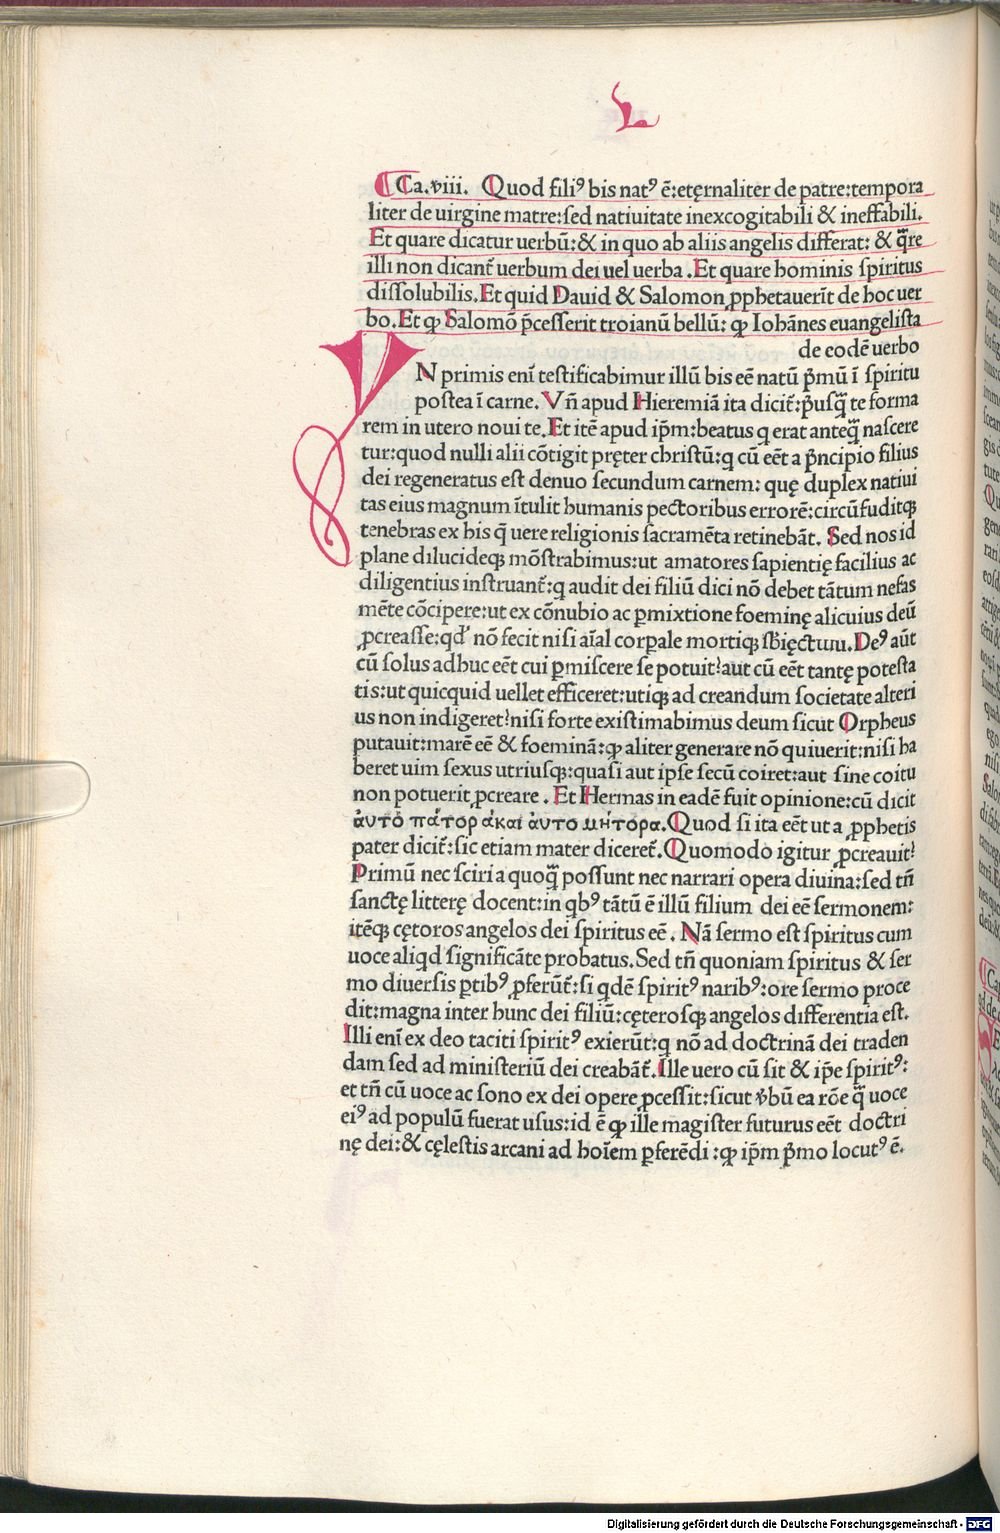 L
Ca.viii. Quod filiꝰ bis natꝰ ē:etęrnaliter de patre:tempora
liter de uirgine matre:sed natiuitate inexcogitabili & ineffabili.
Et quare dicatur uerbū:& in quo ab aliis angelis differat: & q̄re
illi non dicant̄ uerbum dei uel uerba .Et quare hominis spiritus
dissolubilis.Et quid Dauid & Salomon ꝓphetauerīt de hoc uer
bo.Et ꝙ Salomō p̄cesserit troianū bellū: ꝙ Iohānes euangelista
de eodē uerbo
IN primis enī testificabimur illū bis eē natū p̄mū ī spiritu
postea ī carne. Vn̄ apud Hieremiā ita dicit̄:p̄usq̄ te forma
rem in utero noui te.Et itē apud ip̄m:beatus q erat anteq̄ nascere
tur:quod nulli alii cōtigit pręter christū:q cū eēt a p̄ncipio filius
dei regeneratus est denuo secundum carnem: quę duplex natiui
tas eius magnum ītulit humanis pectoribus errorē:circūfuditqꝫ
tenebras ex his q̄ uere religionis sacramēta retinebāt. Sed nos id
plane dilucideqꝫ mōstrabimus:ut amatores sapientię facilius ac
diligentius instruant̄:q audit dei filiū dici nō debet tātum nefas
mēte cōcipere:ut ex cōnubio ac ꝑmixtione foeminę alicuius deū
ꝓcreasse:qd' nō fecit nisi aīal corꝑale mortiqꝫ sb̄ięctum.Deꝰ aūt
cū solus adhuc eēt cui ꝑmiscere se potuit?aut cū eēt tantę potesta
tis:ut quicquid uellet efficeret:utiqꝫ ad creandum societate alteri
us non indigeret?nisi forte existimabimus deum sicut Orpheus
putauit:marē eē & foeminā:ꝙ aliter generare nō quiuerit:nisi ha
beret uim sexus utriusqꝫ:quasi aut ipse secū coiret:aut sine coitu
non potuerit ꝓcreare . Et Hermas in eadē fuit opinione:cū dicit
ἀυτὸ πάτορ ἀκαὶ ἀυτο μήτορα.Quod si ita eēt ut a ꝓphetis
pater dicit̄:sic etiam mater diceret̄.Quomodo igitur ꝓcreauit?
Primū nec sciri a quoq̄ possunt nec narrari opera diuina:sed tn̄
sanctę litterę docent:in qbꝰ tātū ē illū filium dei eē sermonem:
itēqꝫ cętoros angelos dei spiritus eē . Nā sermo est spiritus cum
uoce aliqd significāte probatus.Sed tn̄ quoniam spiritus & ser
mo diuersis ꝑtibꝰ ꝓferūt̄:si qdē spiritꝰ naribꝰ:ore sermo proce
dit:magna inter hunc dei filiū:cęterosqꝫ angelos differentia est.
Illi enī ex deo taciti spiritꝰ exierūt:q nō ad doctrinā dei traden
dam sed ad ministeriū dei creabāt̄.Ille uero cū sit & ip̄e spiritꝰ:
et tn̄ cū uoce ac sono ex dei opere ꝓcessit:sicut v̄bū ea rōe q̄ uoce
eiꝰ ad populū fuerat usus:id ē ꝙ ille magister futurus eēt doctri
nę dei:& cęlestis arcani ad hoīem ꝑferēdi :ꝙ ip̄m p̄mo locutꝰ ē.
Digitalisierung gefördert durch die Deutsche Forschungsgemeinschaft - DFG